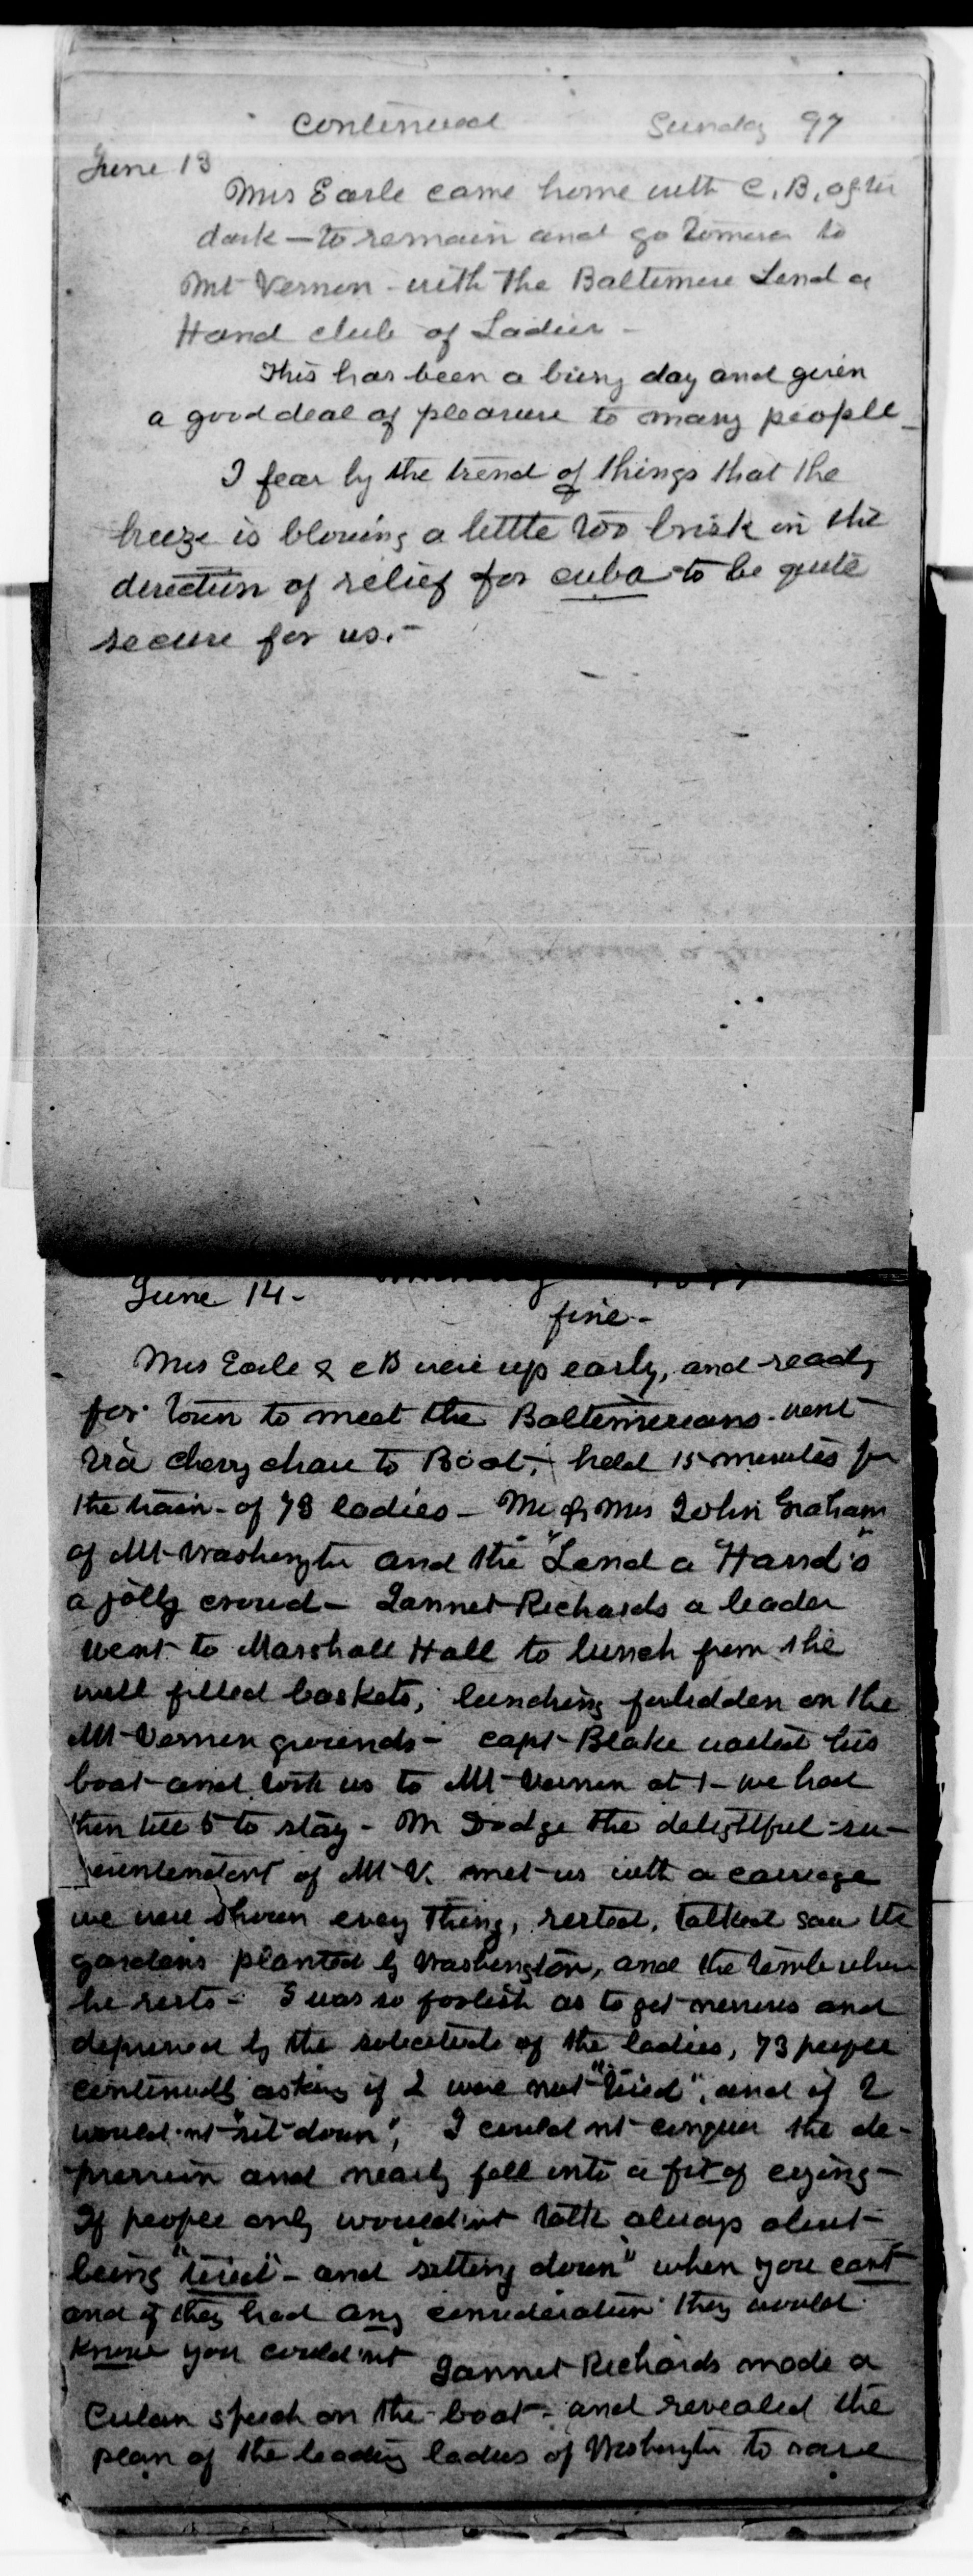 continued Sunday 97
June 13
Mrs Earle came home with C. B. after
dark — to remain and go tomorro to
Mt Vernon - with the Baltimore Lend a
Hand club of Ladies -
This has been a busy day and given
a good deal of pleasure to many people -
I fear by the trend of things that the
breeze is blowing a little too brisk in the
direction of relief for cuba to be quite
secure for us. -
June 14 -
fine -
Mrs Earle & C B were up early, and ready
for town to meet the Baltimoreans - went
via chevy chase to Boat, held 15 minutes for
the train - of 73 ladies - Mr & Mrs John Graham
of Mt Washington and the "Lend a Hand's"
a jolly crowd - Jannet Richards a leader
went to Marshall Hall to lunch from the
well filled baskets, lunching forbidden on the
Mt Vernon grounds - capt Blake waited his
boat and took us to Mt Vernon at 1 - we had
then till 5 to stay - Mr Dodge the delightful su-
perintendent of Mt V. met us with a carriage
we were shown every thing, rested, talked saw the
gardens planted by Washington, and the tomb where
he rests - I was so foolish as to get nervous and
depressed by the solicitude of the ladies, 73 people
continually asking if I were not "tired", and if I
would nt "sit down", I could nt conquer the de-
pression and nearly fell into a fit of crying -
If people only would'nt talk always about
being "tired" - and "sitting down" when you cant
and if they had any consideration they would
know you could'nt Jannet Richards made a
Cuban speech on the boat - and revealed the
plan of the leading ladies of Washington to raise